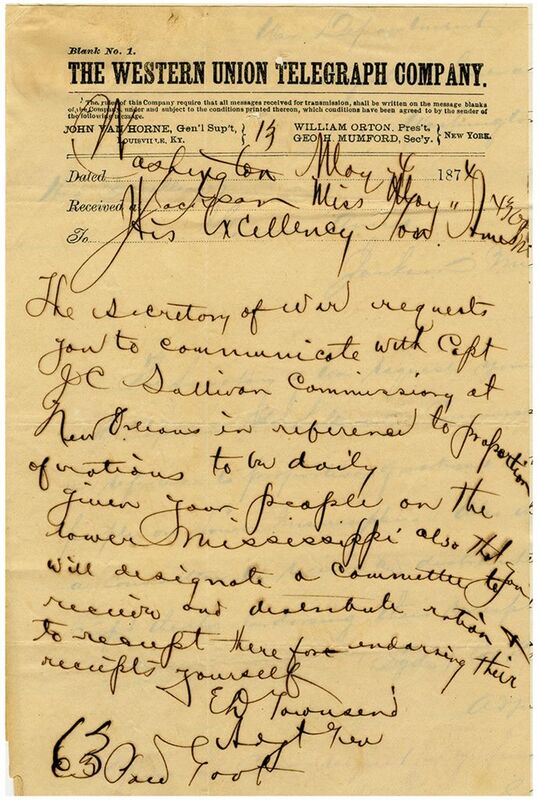 Blank No. 1.
THE WESTERN UNION TELEGRAPH COMPANY.
The rules of this Company require that all messages received for transmission, shall be written on the message blanks
of the Company, under and subject to the conditions printed thereon, which conditions have been agreed to by the sender of
the following message.
JOHN VAN HORNE, Gen'l Sup't,
LOUISVILLE, KY.
13
WILLIAM ORTON, Pres't.
GEO. H. MUMFORD, Sec'y.
NEW YORK.
Dated Washington May 4 1874
Received at Jackson Miss May 4 430
To His Excellency Gov Ames
The secretary of war requests
you to communicate with Capt
J C Sullivan Commissary at
New Orleans in reference to proportion
of rations to be daily
given your people on the
lower Mississippi also that you
will designate a committee to
receive and distribute ration &
to receipt there for endorsing their
receipts yourself
ED Townsend
Adjt Gen
63 Paid Govt